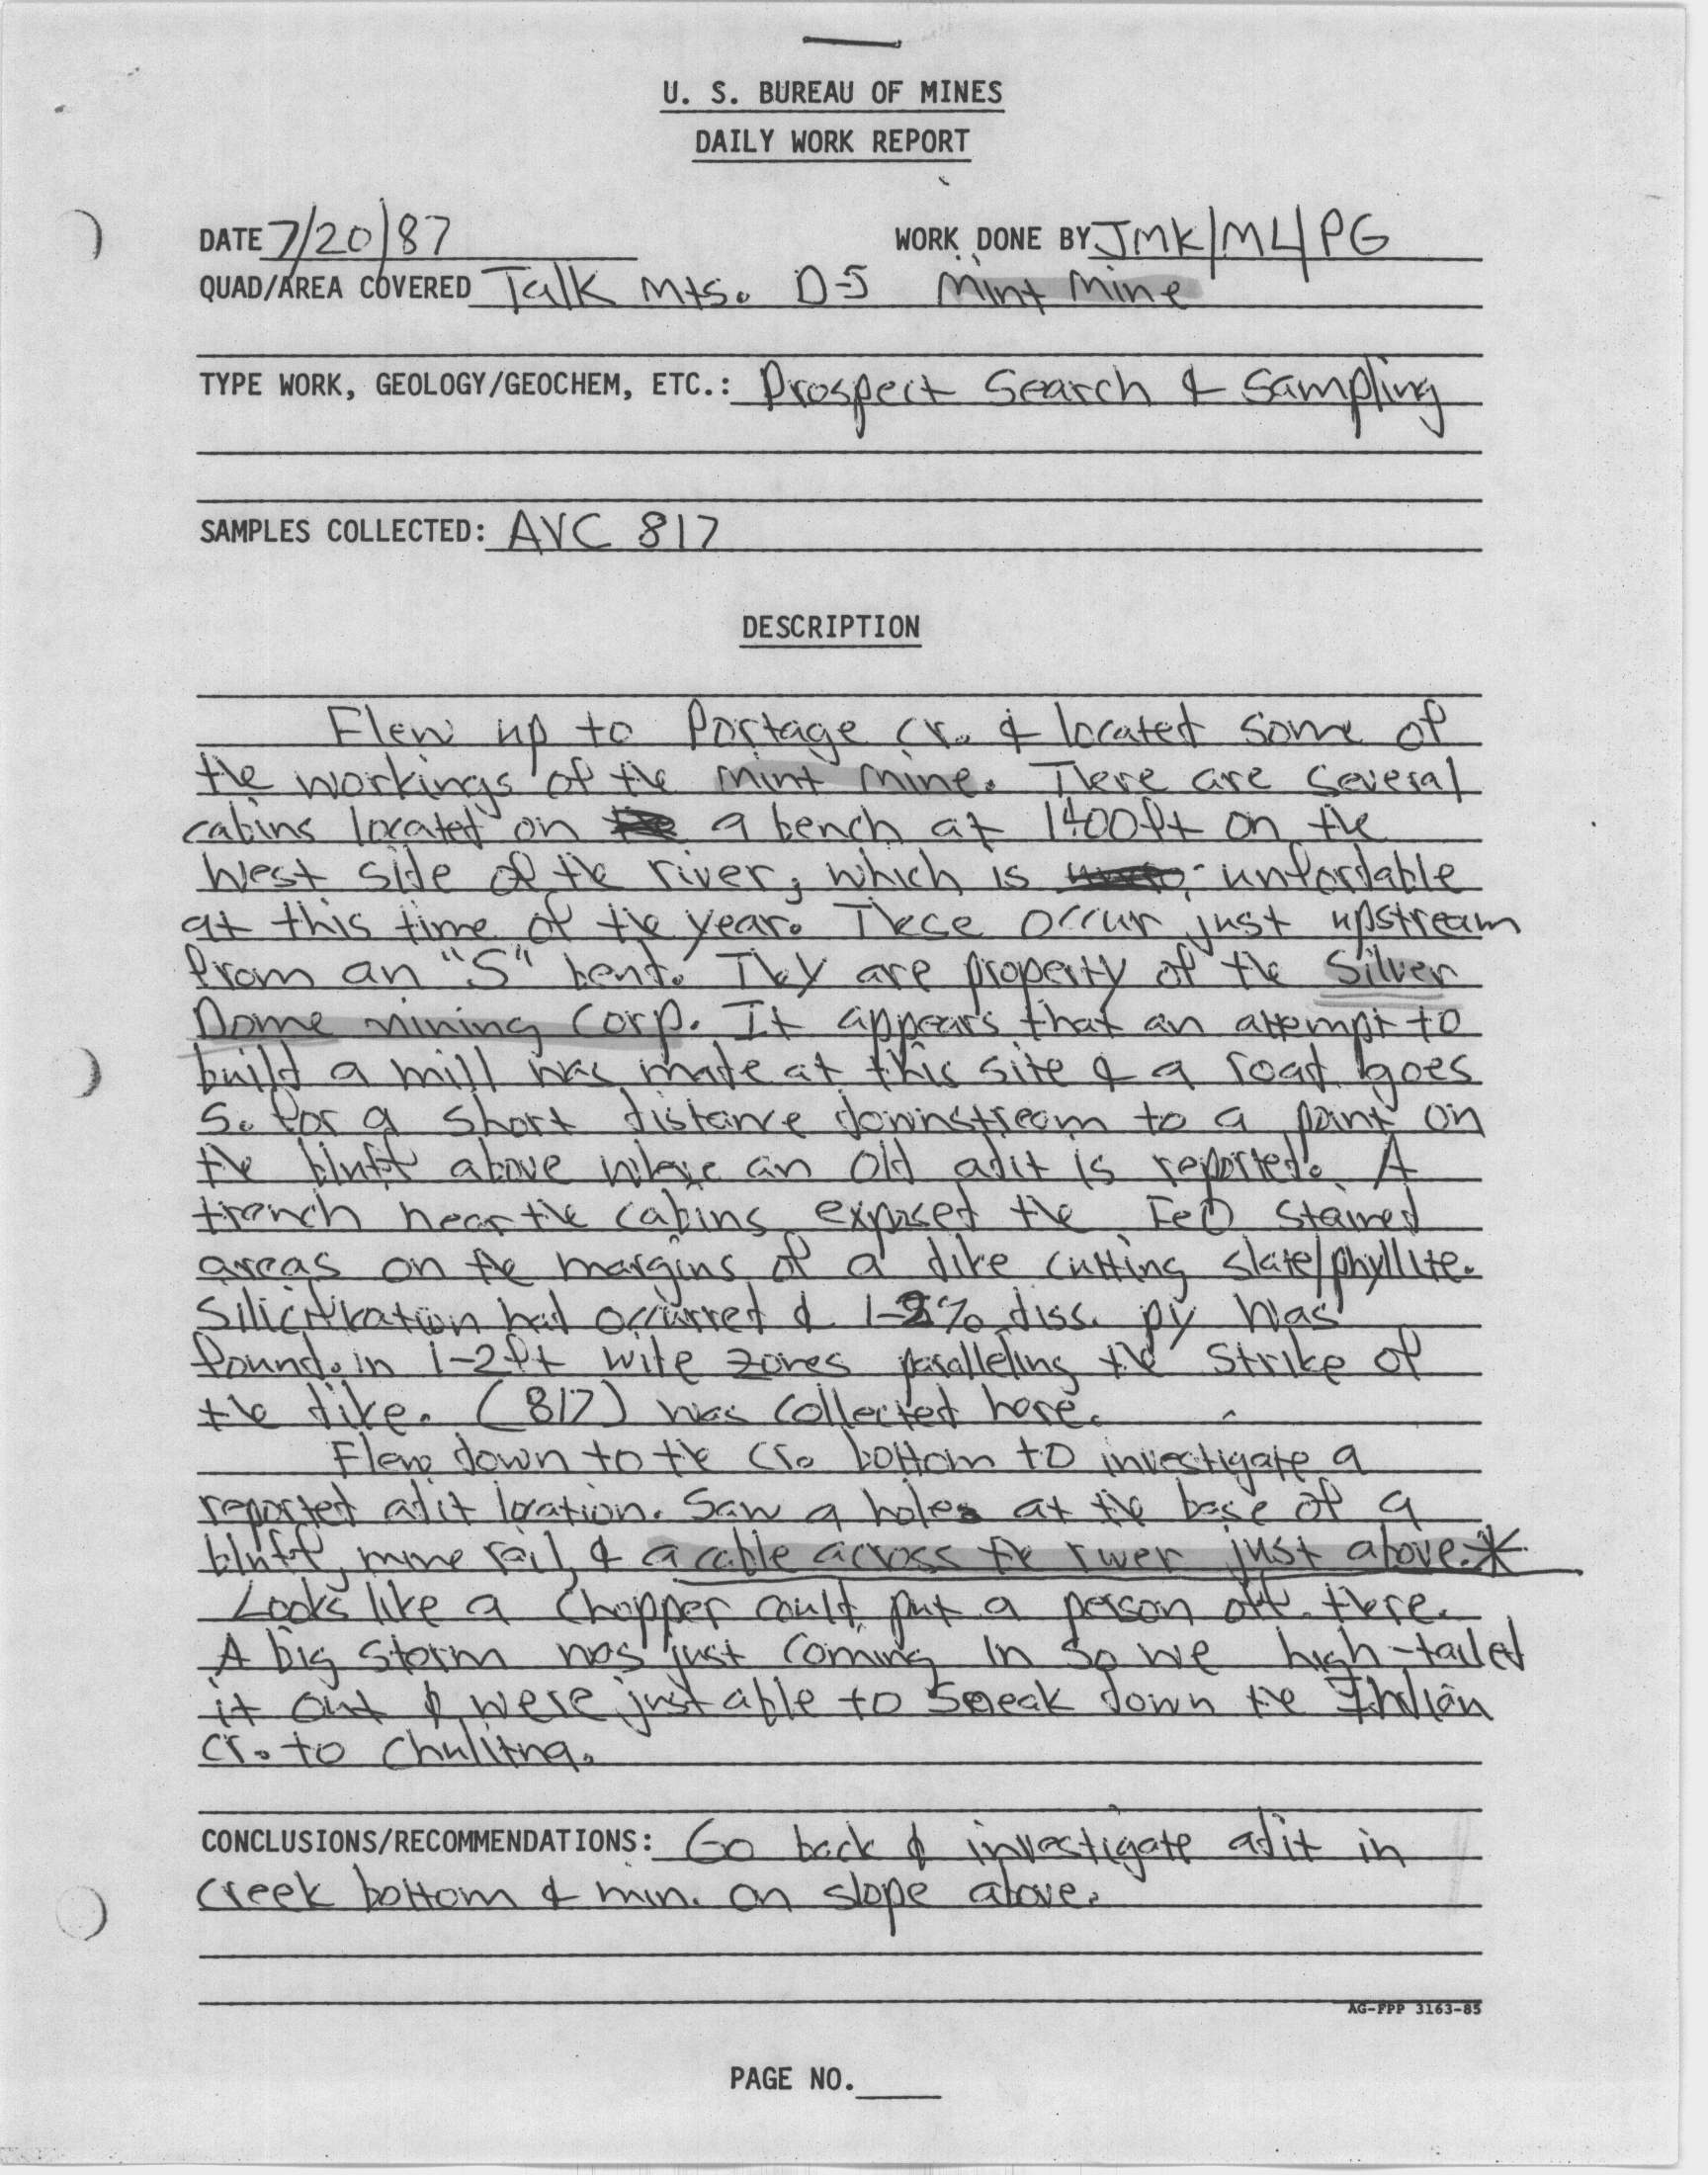 U. S. BUREAU OF MINES
DAILY WORK REPORT
DATE 7/20/87 WORK DONE BY JMK/ML/PG
QUAD/AREA COVERED Talk Mts. D-5 Mint Mine
TYPE WORK, GEOLOGY/GEOCHEM, ETC.: Prospect Search & Sampling
SAMPLES COLLECTED: AVC 817
DESCRIPTION
Flew up to Portage Cr. & located some of
the workings of the Mint Mine. There are several
cabins located on a bench at 1400ft on the
West side of the river, which is unfordable
at this time of the year. These occur just upstream
from an "S" bend. They are property of the Silver
Dome mining Corp. It appears that an attempt to
build a mill was made at this site & a road goes
S. for a short distance downstream to a point on
the bluff above where an old adit is reported. A
trench near the cabins exposed the FeO stained
areas on the margins of a dike cutting slate/phyllite.
Silicification had occurred & 1-2% diss. py was
found in 1-2ft wide zones paralleling the strike of
the dike. (817) was collected here.
Flew down to the Cr. bottom to investigate a
reported adit location. Saw a hole at the base of a
bluff, mine rail, & a cable across the river just above.*
Looks like a chopper could put a person off there.
A big storm was just coming in so we high-tailed
it out & were just able to sneak down the Indian
Cr. to Chulitna.
CONCLUSIONS/RECOMMENDATIONS: Go back & investigate adit in
creek bottom & min. on slope above.
AG-FPP 3163-85
PAGE NO.